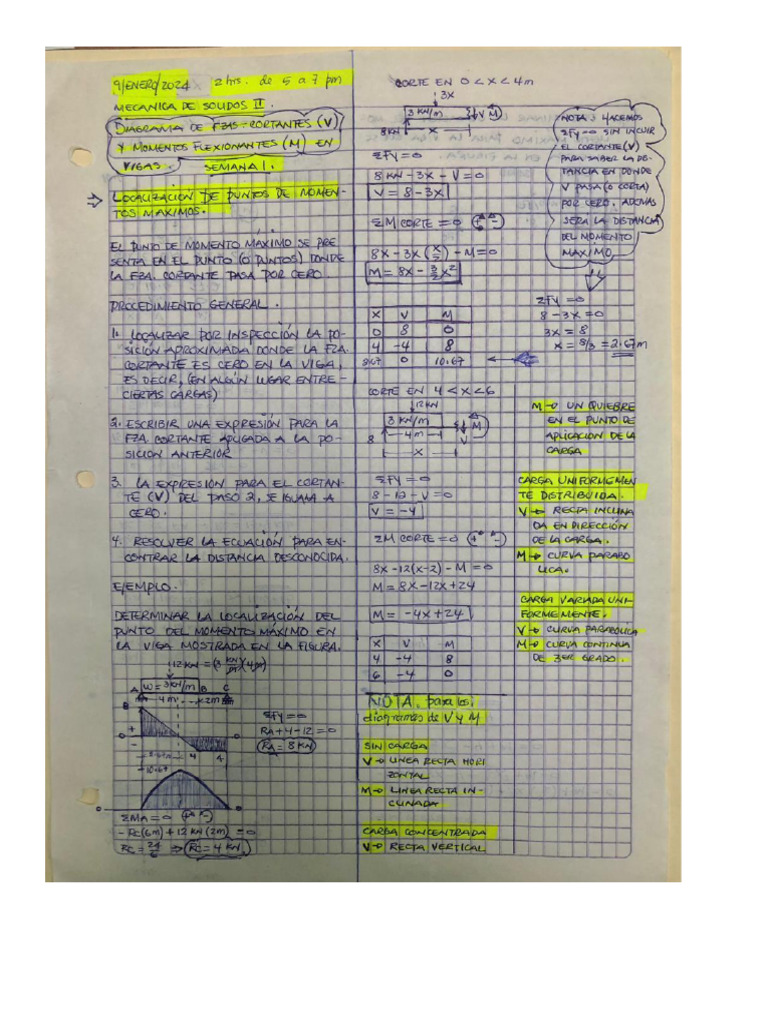 9/ENERO/2024 2 hrs. de 5 a 7 pm
MECANICA DE SOLIDOS II.
DIAGRAMA DE FZAS-CORTANTES (V)
Y MOMENTOS FLEXIONANTES (M) EN
VIGAS. SEMANA 1.
LOCALIZACIÓN DE PUNTOS DE MOMEN-
TOS MAXIMOS.
EL PUNTO DE MOMENTO MÁXIMO SE PRE
SENTA EN EL PUNTO (O PUNTOS) DONDE
LA FZA. CORTANTE PASA POR CERO.
PROCEDIMIENTO GENERAL.
1. LOCALIZAR POR INSPECCIÓN LA PO-
SICIÓN APROXIMADA DONDE LA FZA.
CORTANTE ES CERO EN LA VIGA,
ES DECIR, (EN ALGÚN LUGAR ENTRE-
CIERTAS CARGAS)
2. ESCRIBIR UNA EXPRESIÓN PARA LA
FZA. CORTANTE APLICADA A LA PO-
SICION ANTERIOR
3. LA EXPRESIÓN PARA EL CORTAN-
TE (V) DEL PASO 2, SE IGUALA A
CERO.
4. RESOLVER LA ECUACIÓN PARA EN-
CONTRAR LA DISTANCIA DESCONOCIDA.
EJEMPLO.
DETERMINAR LA LOCALIZACIÓN DEL
PUNTO DEL MOMENTO MÁXIMO EN
LA VIGA MOSTRADA EN LA FIGURA.
12 KN = (3 KN/m)(4m)
A W = 3KN/m B C
4m 2m
8
+
-
4
10.67
ΣFY = 0
RA + 4 - 12 = 0
RA = 8 KN
ΣMA = 0 (+ -)
- RC(6m) + 12 KN (2m) = 0
RC = 24/6 ⇒ RC = 4 KN
CORTE EN 0 < X < 4m
3X
3 KN/m V M
8KN X
ΣFY = 0
8 KN - 3X - V = 0
V = 8 - 3X
ΣM CORTE = 0 (+ -)
8X - 3X (X/2) - M = 0
M = 8X - 3/2 X²
X V M
0 8 0
4 -4 8
8/3 0 10.67
CORTE EN 4 < X < 6
12KN
3 KN/m M
8 4m V
X
ΣFY = 0
8 - 12 - V = 0
V = -4
ΣM CORTE = 0 (+ -)
8X - 12(X-2) - M = 0
M = 8X - 12X + 24
M = -4X + 24
X V M
4 -4 8
6 -4 0
NOTA. para los
diagramas de V y M
SIN CARGA
V → LINEA RECTA HORI
ZONTAL
M → LINEA RECTA IN-
CLINADA
CARGA CONCENTRADA
V → RECTA VERTICAL
NOTA: HACEMOS
ΣFY = 0 SIN INCLUIR
EL CORTANTE (V)
PARA SABER LA DIS-
TANCIA EN DONDE
V PASA (O CORTA)
POR CERO. ADEMAS
SERA LA DISTANCIA
DEL MOMENTO
MAXIMO
ΣFY = 0
8 - 3X = 0
3X = 8
X = 8/3 = 2.67 m
M → UN QUIEBRE
EN EL PUNTO DE
APLICACIÓN DE LA
CARGA
CARGA UNIFORMEMEN
TE DISTRIBUIDA.
V → RECTA INCLINA
DA EN DIRECCIÓN
DE LA CARGA.
M → CURVA PARABO
LICA.
CARGA VARIADA UNI-
FORMEMENTE.
V → CURVA PARABOLICA
M → CURVA CONTINUA
DE 3ER GRADO.